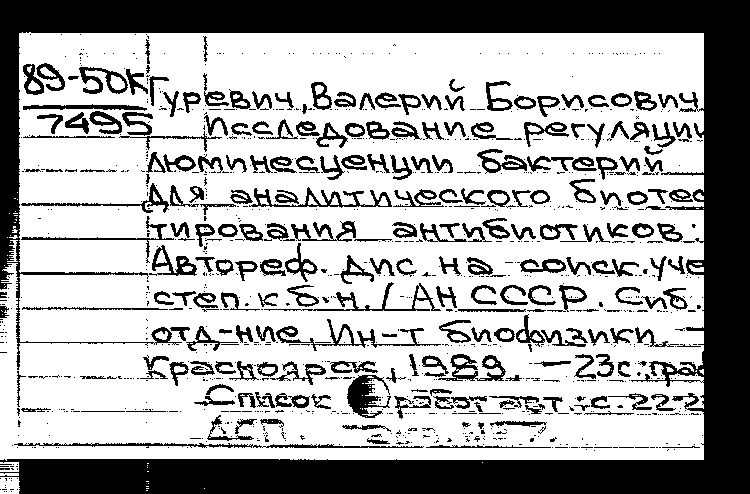 89-50К Гуревич, Валерий Борисович
7495 Исследование регуляции
люминесценции бактерий
для аналитического биотес
тирования антибиотиков:
Автореф. дис. на соиск. уче
степ. к.б.н. / АН СССР. Сиб.
отд-ние, Ин-т биофизики. —
Красноярск, 1989. — 23с.: граф
Список работ авт.: с. 22-2
ДСП. экз. № 7.